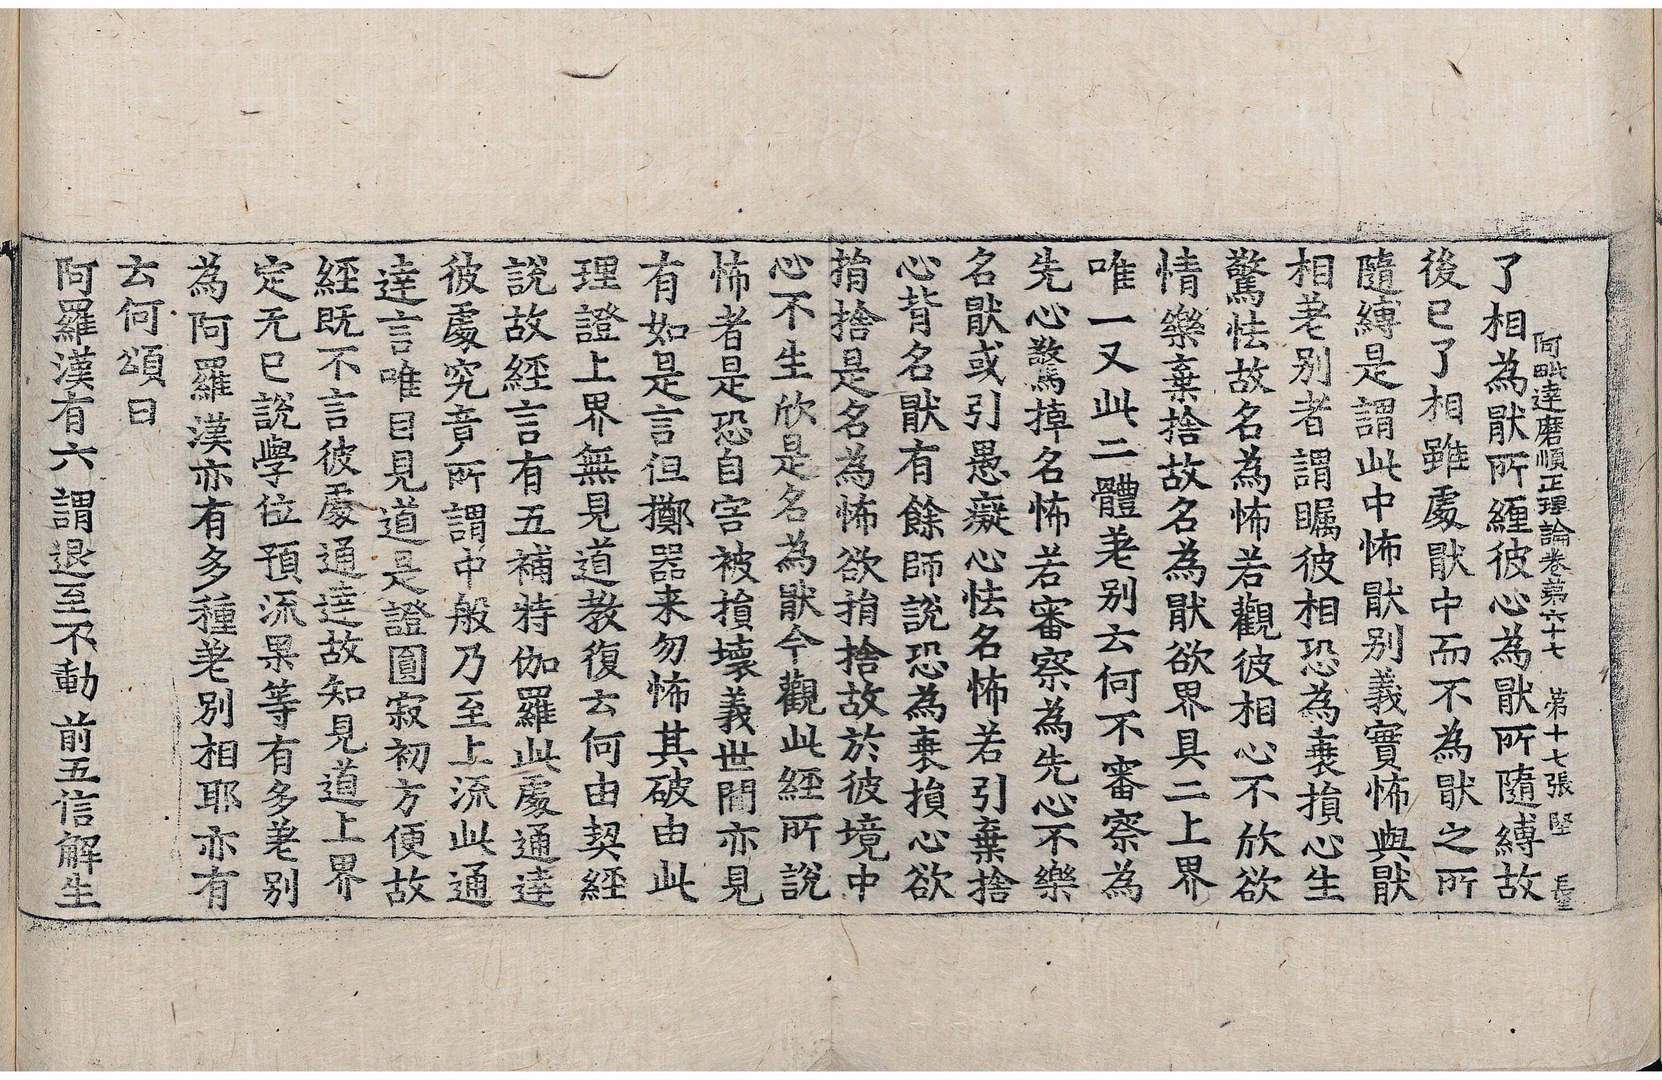 阿毗達磨順正理論卷第六十七 第十七張 堅
了相為猒所纏彼心為猒所隨縛故
後已了相雖處猒中而不為猒之所
隨縛是謂此中怖猒別義實怖與猒
相差別者謂矚彼相恐為衰損心生
驚怯故名為怖若觀彼相心不欣欲
情樂棄捨故名為猒欲界具二上界
唯一又此二體差別云何不審察為
先心驚掉名怖若審察為先心不樂
名猒或引愚癡心怯名怖若引棄捨
心背名猒有餘師說恐為衰損心欲
捐捨是名為怖欲捐捨故於彼境中
心不生欣是名為猒今觀此經所說
怖者是恐自害被損壞義世間亦見
有如是言但擲器来勿怖其破由此
理證上界無見道教復云何由契經
說故經言有五補特伽羅此處通達
彼處究竟所謂中般乃至上流此通
達言唯目見道是證圓寂初方便故
經既不言彼處通達故知見道上界
定无已說學位預流果等有多差別
為阿羅漢亦有多種差別相耶亦有
云何頌曰
阿羅漢有六 謂退至不動 前五信解生